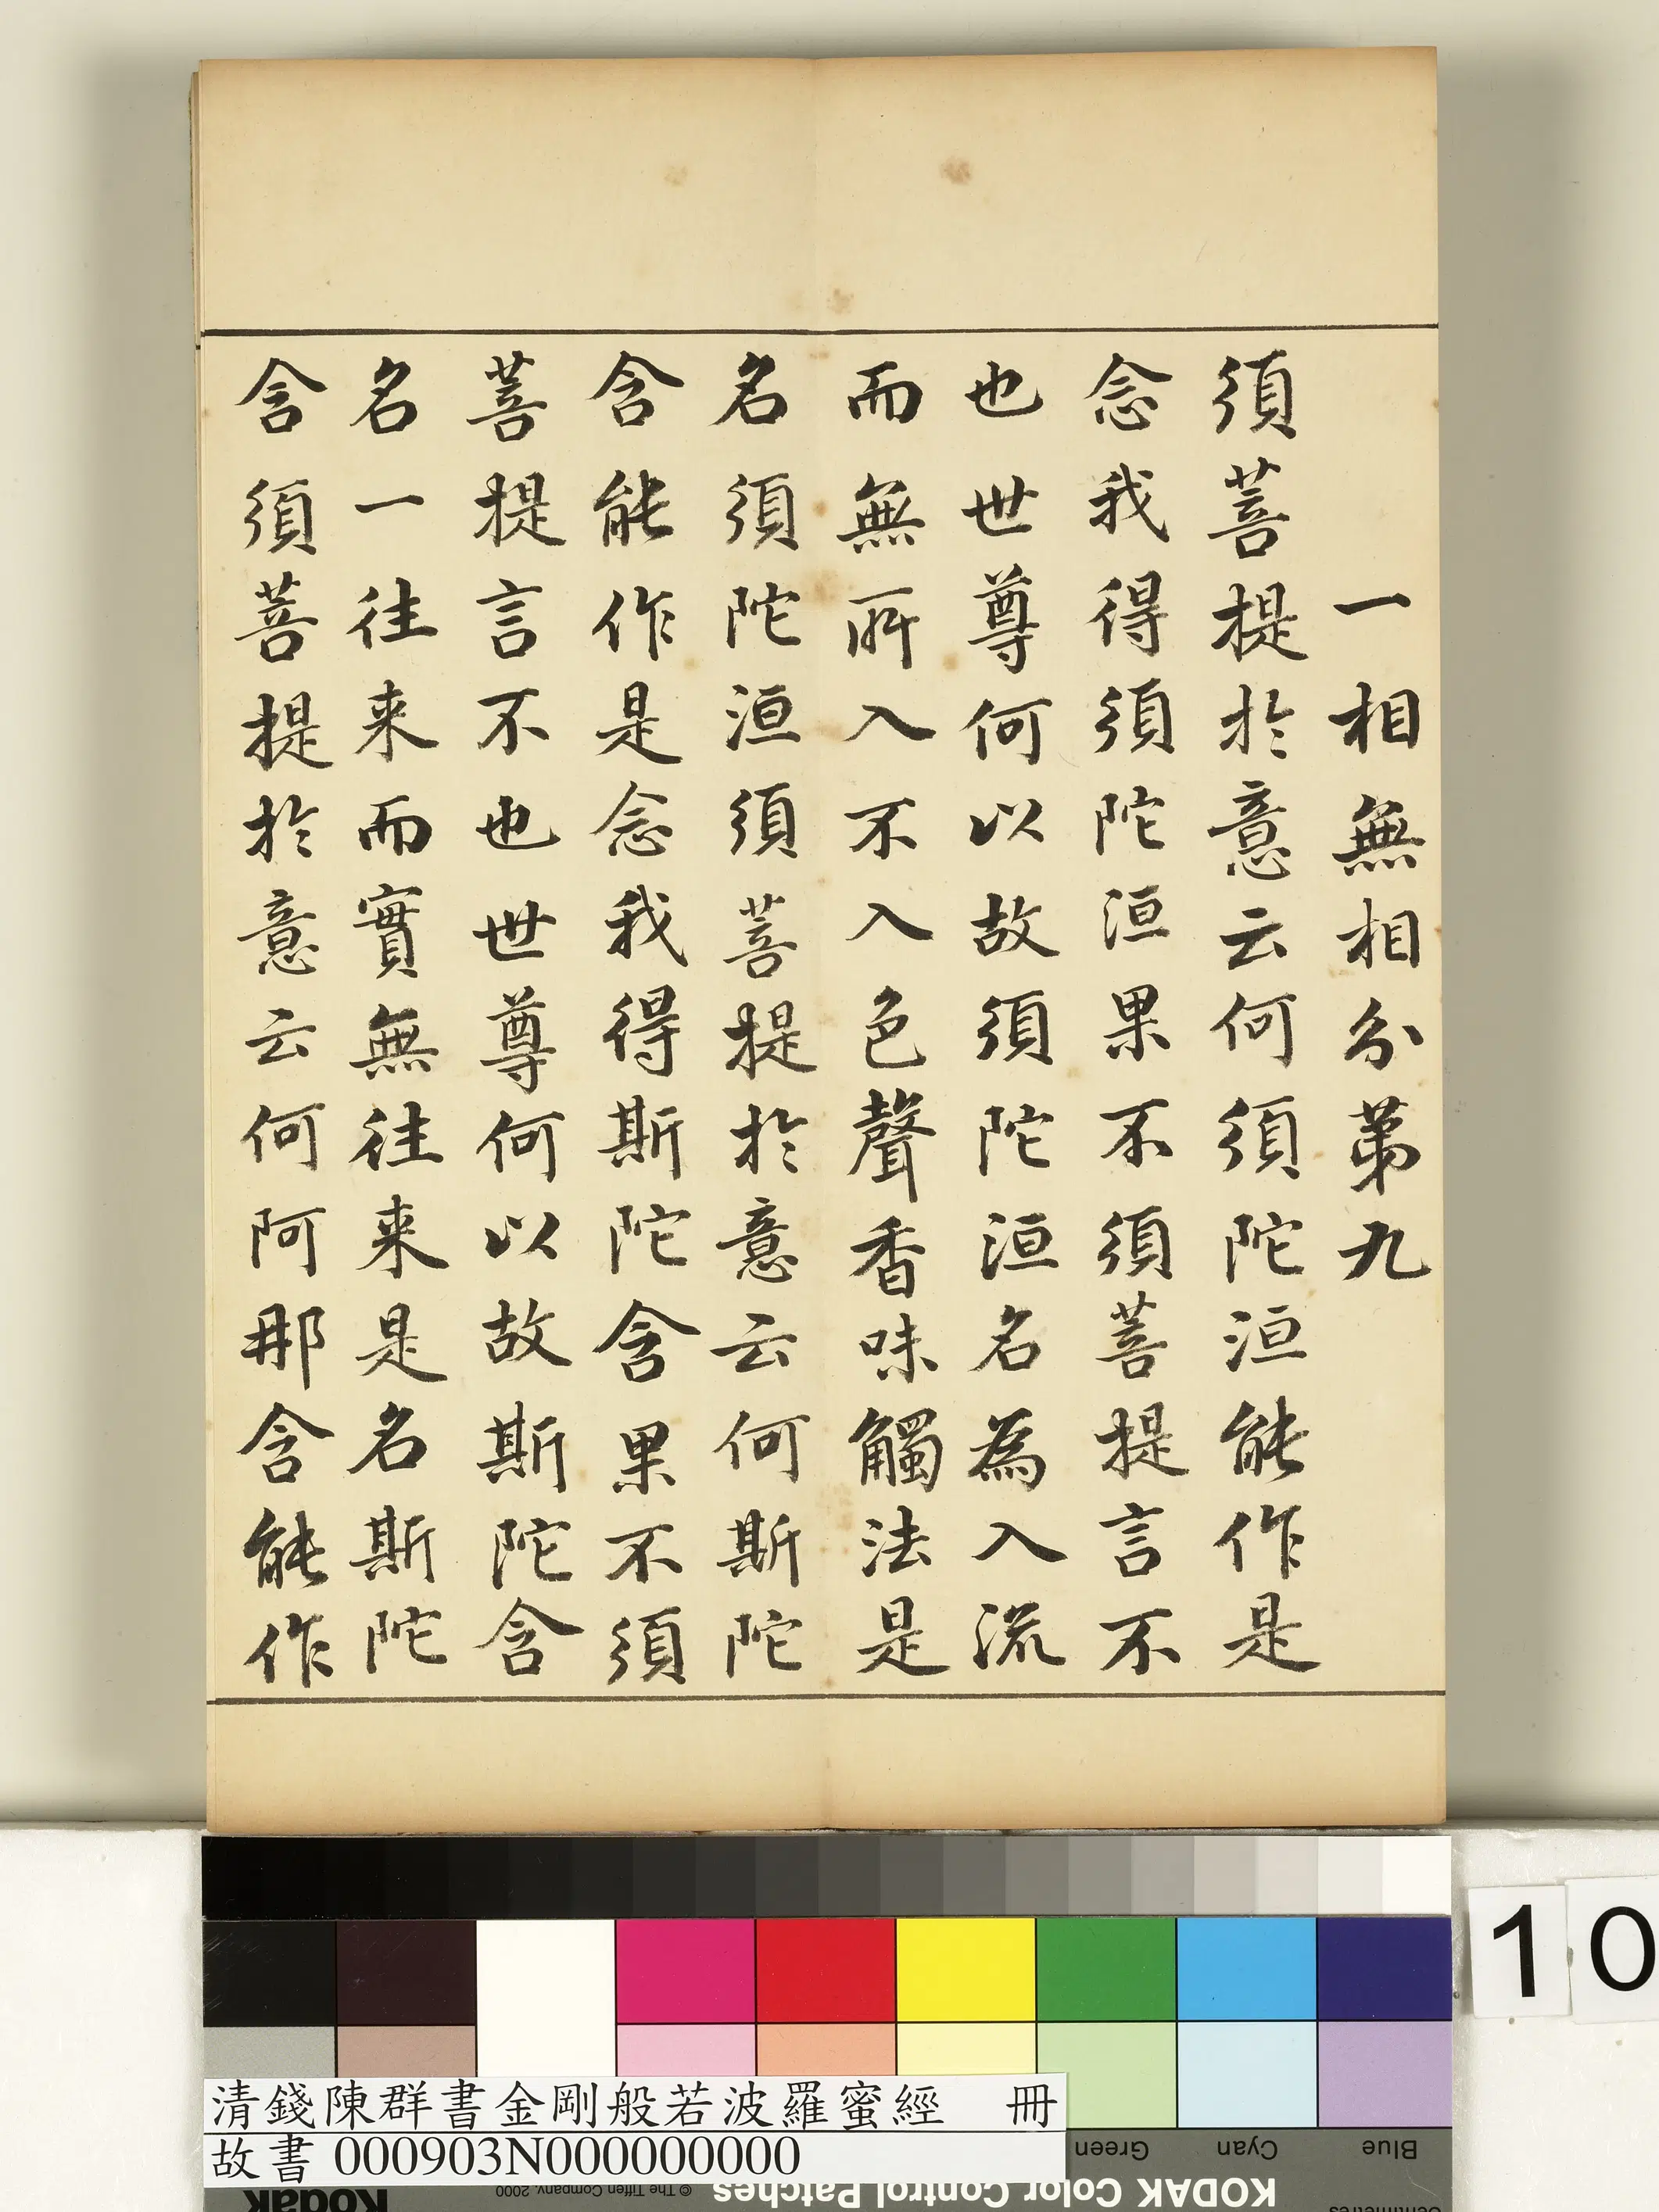 一相無相分第九
須菩提於意云何須陀洹能作是
念我得須陀洹果不須菩提言不
也世尊何以故須陀洹名為入流
而無所入不入色聲香味觸法是
名須陀洹須菩提於意云何斯陀
含能作是念我得斯陀含果不須
菩提言不也世尊何以故斯陀含
名一往来而實無往来是名斯陀
含須菩提於意云何阿那含能作
10
清錢陳群書金剛般若波羅蜜經 冊
故書 000903N000000000
Green
Cyan
Blue
Kodak
© The Tiffen Company, 2000
KODAK Color Control Patches
Centimetres